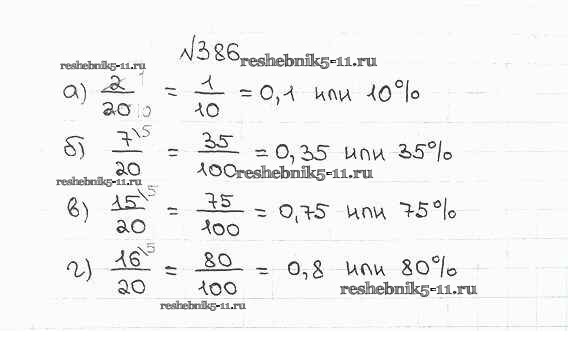 №386 reshebnik5-11.ru
reshebnik5-11.ru
а) 2/20 = 1/10 = 0,1 или 10%
б) 7\5/20 = 35/100 = 0,35 или 35%
reshebnik5-11.ru
reshebnik5-11.ru
в) 15\5/20 = 75/100 = 0,75 или 75%
г) 16\5/20 = 80/100 = 0,8 или 80%
reshebnik5-11.ru
reshebnik5-11.ru